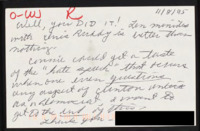 O-W R 11/8/95
Well, you DID IT! Ten minutes
with Chris Ruddy is better than
nothing.
Connie could get a taste
of the "hate speech" that occurs
when one even questions
any aspect of Clinton's
and
get to the end of
Thank you